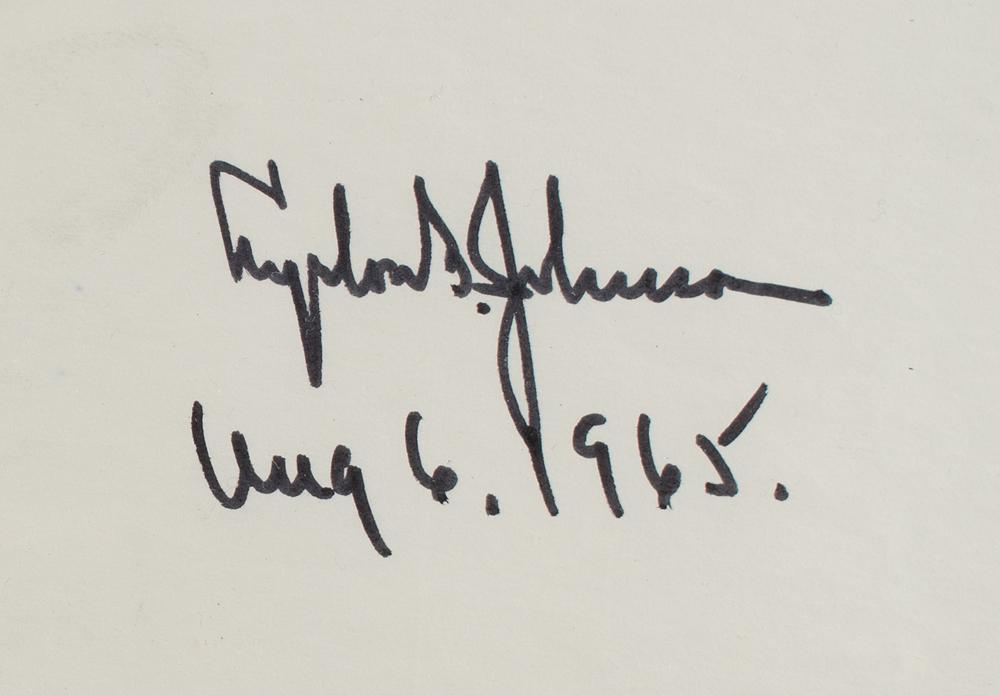 Lyndon B. Johnson
Aug 6. 1965.